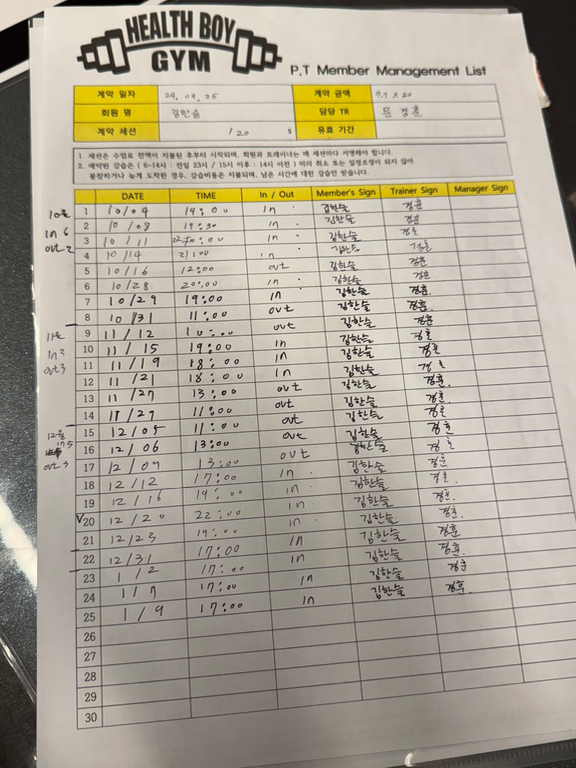 HEALTH BOY
GYM
P.T Member Management List
계약 일자 24, 09, 25 계약 금액
회원 명 김한슬 담당 TR 문 경훈
계약 세션 / 20 s 유효 기간
1. 세션은 수업료 전액이 지불된 후부터 시작되며, 회원과 트레이너는 매 세션마다 서명해야 합니다.
2. 예약된 강습은 ( 6-14시 : 전일 23시 / 15시 이후 : 14시 이전 ) 미리 취소 또는 일정조정이 되지 않아
불참하거나 늦게 도착한 경우, 강습비용은 지불되며, 남은 시간에 대한 강습만 받습니다.
DATE TIME In / Out Member's Sign Trainer Sign Manager Sign
10월 1 10/04 19:00 in 김한슬 경훈
in 6 2 10/08 19:30 in 김한슬 경훈
out 2 3 10/11 :00 in 김한슬 경훈
4 10/14 21:00 in 김한슬 경훈
5 10/16 12:00 out 김한슬 경훈
6 10/28 20:00 in 김한슬 경훈
7 10/29 19:00 in 김한슬 경훈
8 10/31 11:00 out 김한슬 경훈
11월 9 11/12 out 김한슬 경훈
in 3 10 11/15 19:00 in 김한슬 경훈
out 3 11 11/19 18:00 in 김한슬 경훈
12 11/21 18:00 in 김한슬 경훈
13 11/27 13:00 out 김한슬 경훈
14 11/29 11:00 out 김한슬 경훈
12월 15 12/05 11:00 out 김한슬 경훈
in 5 16 12/06 13:00 out 김한슬 경훈
out 3 17 12/09 13:00 out 김한슬 경훈
18 12/12 17:00 in 김한슬 경훈
19 12/16 19:00 in 김한슬 경훈
V 20 12/20 22:00 in 김한슬 경훈
21 12/23 19:00 in 김한슬 경훈
22 12/31 17:00 in 김한슬 경훈
23 1/2 17:00 김한슬 경훈
24 1/7 17:00 in 김한슬 경훈
25 1/9 17:00 in 김한슬 경훈
26
27
28
29
30